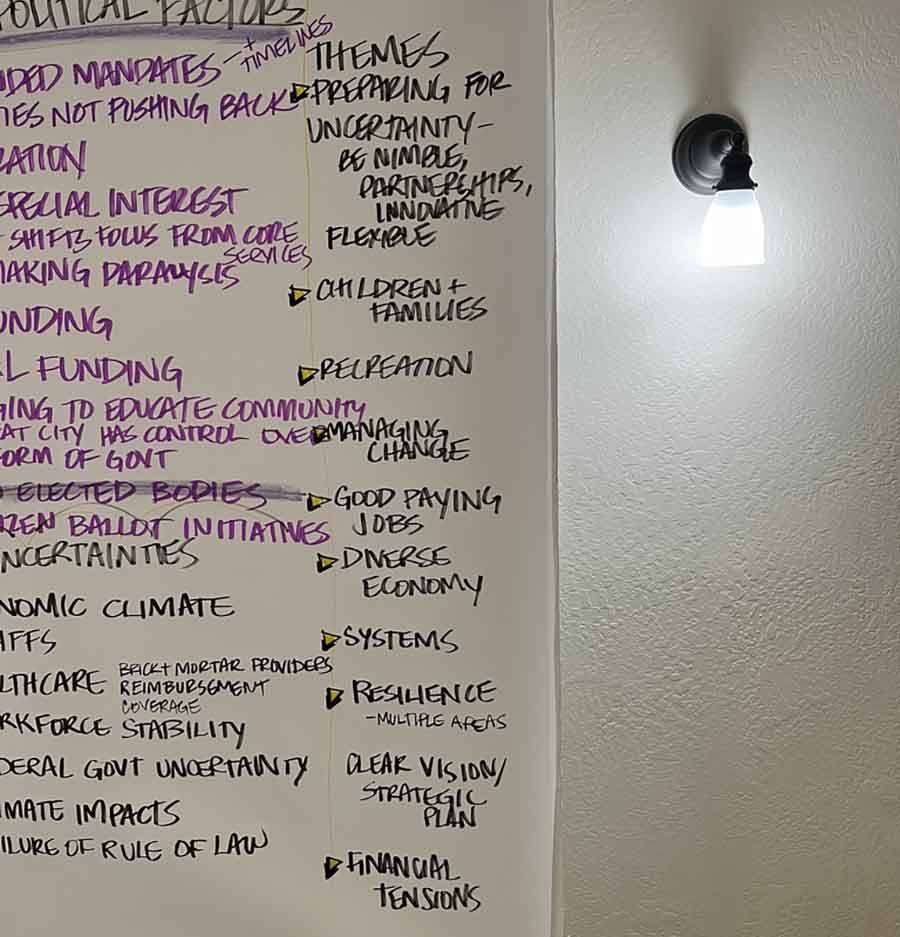 POLITICAL FACTORS
DED MANDATES - + TIMELINES
TIES NOT PUSHING BACK
RATION
SPECIAL INTEREST
- SHIFTS FOCUS FROM CORE
SERVICES
MAKING PARALYSIS
UNDING
L FUNDING
GING TO EDUCATE COMMUNITY
AT CITY HAS CONTROL OVER
FORM OF GOVT
ELECTED BODIES
ZEN BALLOT INITIATIVES
NCERTAINTIES
NOMIC CLIMATE
IFFS
LTHCARE
BRICK + MORTAR PROVIDERS
REIMBURSEMENT
COVERAGE
RKFORCE STABILITY
DERAL GOVT UNCERTAINTY
IMATE IMPACTS
ILURE OF RULE OF LAW
THEMES
PREPARING FOR
UNCERTAINTY -
BE NIMBLE,
PARTNERSHIPS,
INNOVATIVE
FLEXIBLE
CHILDREN +
FAMILIES
RECREATION
MANAGING
CHANGE
GOOD PAYING
JOBS
DIVERSE
ECONOMY
SYSTEMS
RESILIENCE
- MULTIPLE AREAS
CLEAR VISION/
STRATEGIC
PLAN
FINANCIAL
TENSIONS